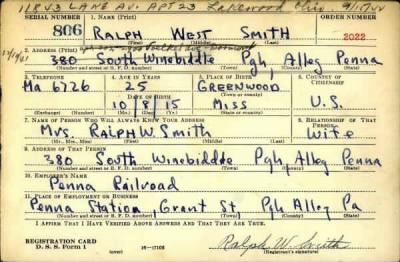 11843 LANE AV. APT 23 Lakewood Ohio 9/17/42
SERIAL NUMBER 1. NAME (Print) ORDER NUMBER
806 RALPH West Smith 2022
(First) (Middle) (Last)
2. ADDRESS (Print)
380 South Winebiddle Pgh, Alleg Penna
(Number and street or R. F. D. number) (Town) (County) (State)
3. TELEPHONE 4. AGE IN YEARS 5. PLACE OF BIRTH 6. COUNTRY OF CITIZENSHIP
Ma 6726 25 GREENWOOD
DATE OF BIRTH (Town or county)
10 / 8 / 15 Miss U.S.
(Exchange) (Number) (Mo.) (Day) (Yr.) (State or country)
7. NAME OF PERSON WHO WILL ALWAYS KNOW YOUR ADDRESS 8. RELATIONSHIP OF THAT PERSON
Mrs. RALPH W. Smith Wife
(Mr., Mrs., Miss) (First) (Middle) (Last)
9. ADDRESS OF THAT PERSON
380 South Winebiddle Pgh, Alleg Penna
(Number and street or R. F. D. number) (Town) (County) (State)
10. EMPLOYER'S NAME
Penna Railroad
11. PLACE OF EMPLOYMENT OR BUSINESS
Penna Station, Grant St, Pgh Alleg Pa
(Number and street or R. F. D. number) (Town) (County) (State)
I AFFIRM THAT I HAVE VERIFIED ABOVE ANSWERS AND THAT THEY ARE TRUE.
REGISTRATION CARD
D. S. S. Form 1 (over) 16—17105 Ralph W. Smith
(Registrant's signature)